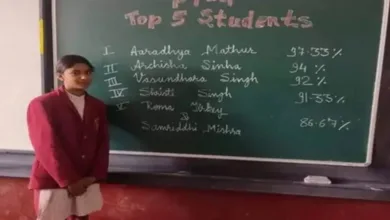 Top 5 Students
I Aaradhya Mathur 97.33%
II Archisha Sinha 94%
III Vasundhara Singh 92%
IV Singh 91.33%
V
&
Samreddhi Mishra 86.67%